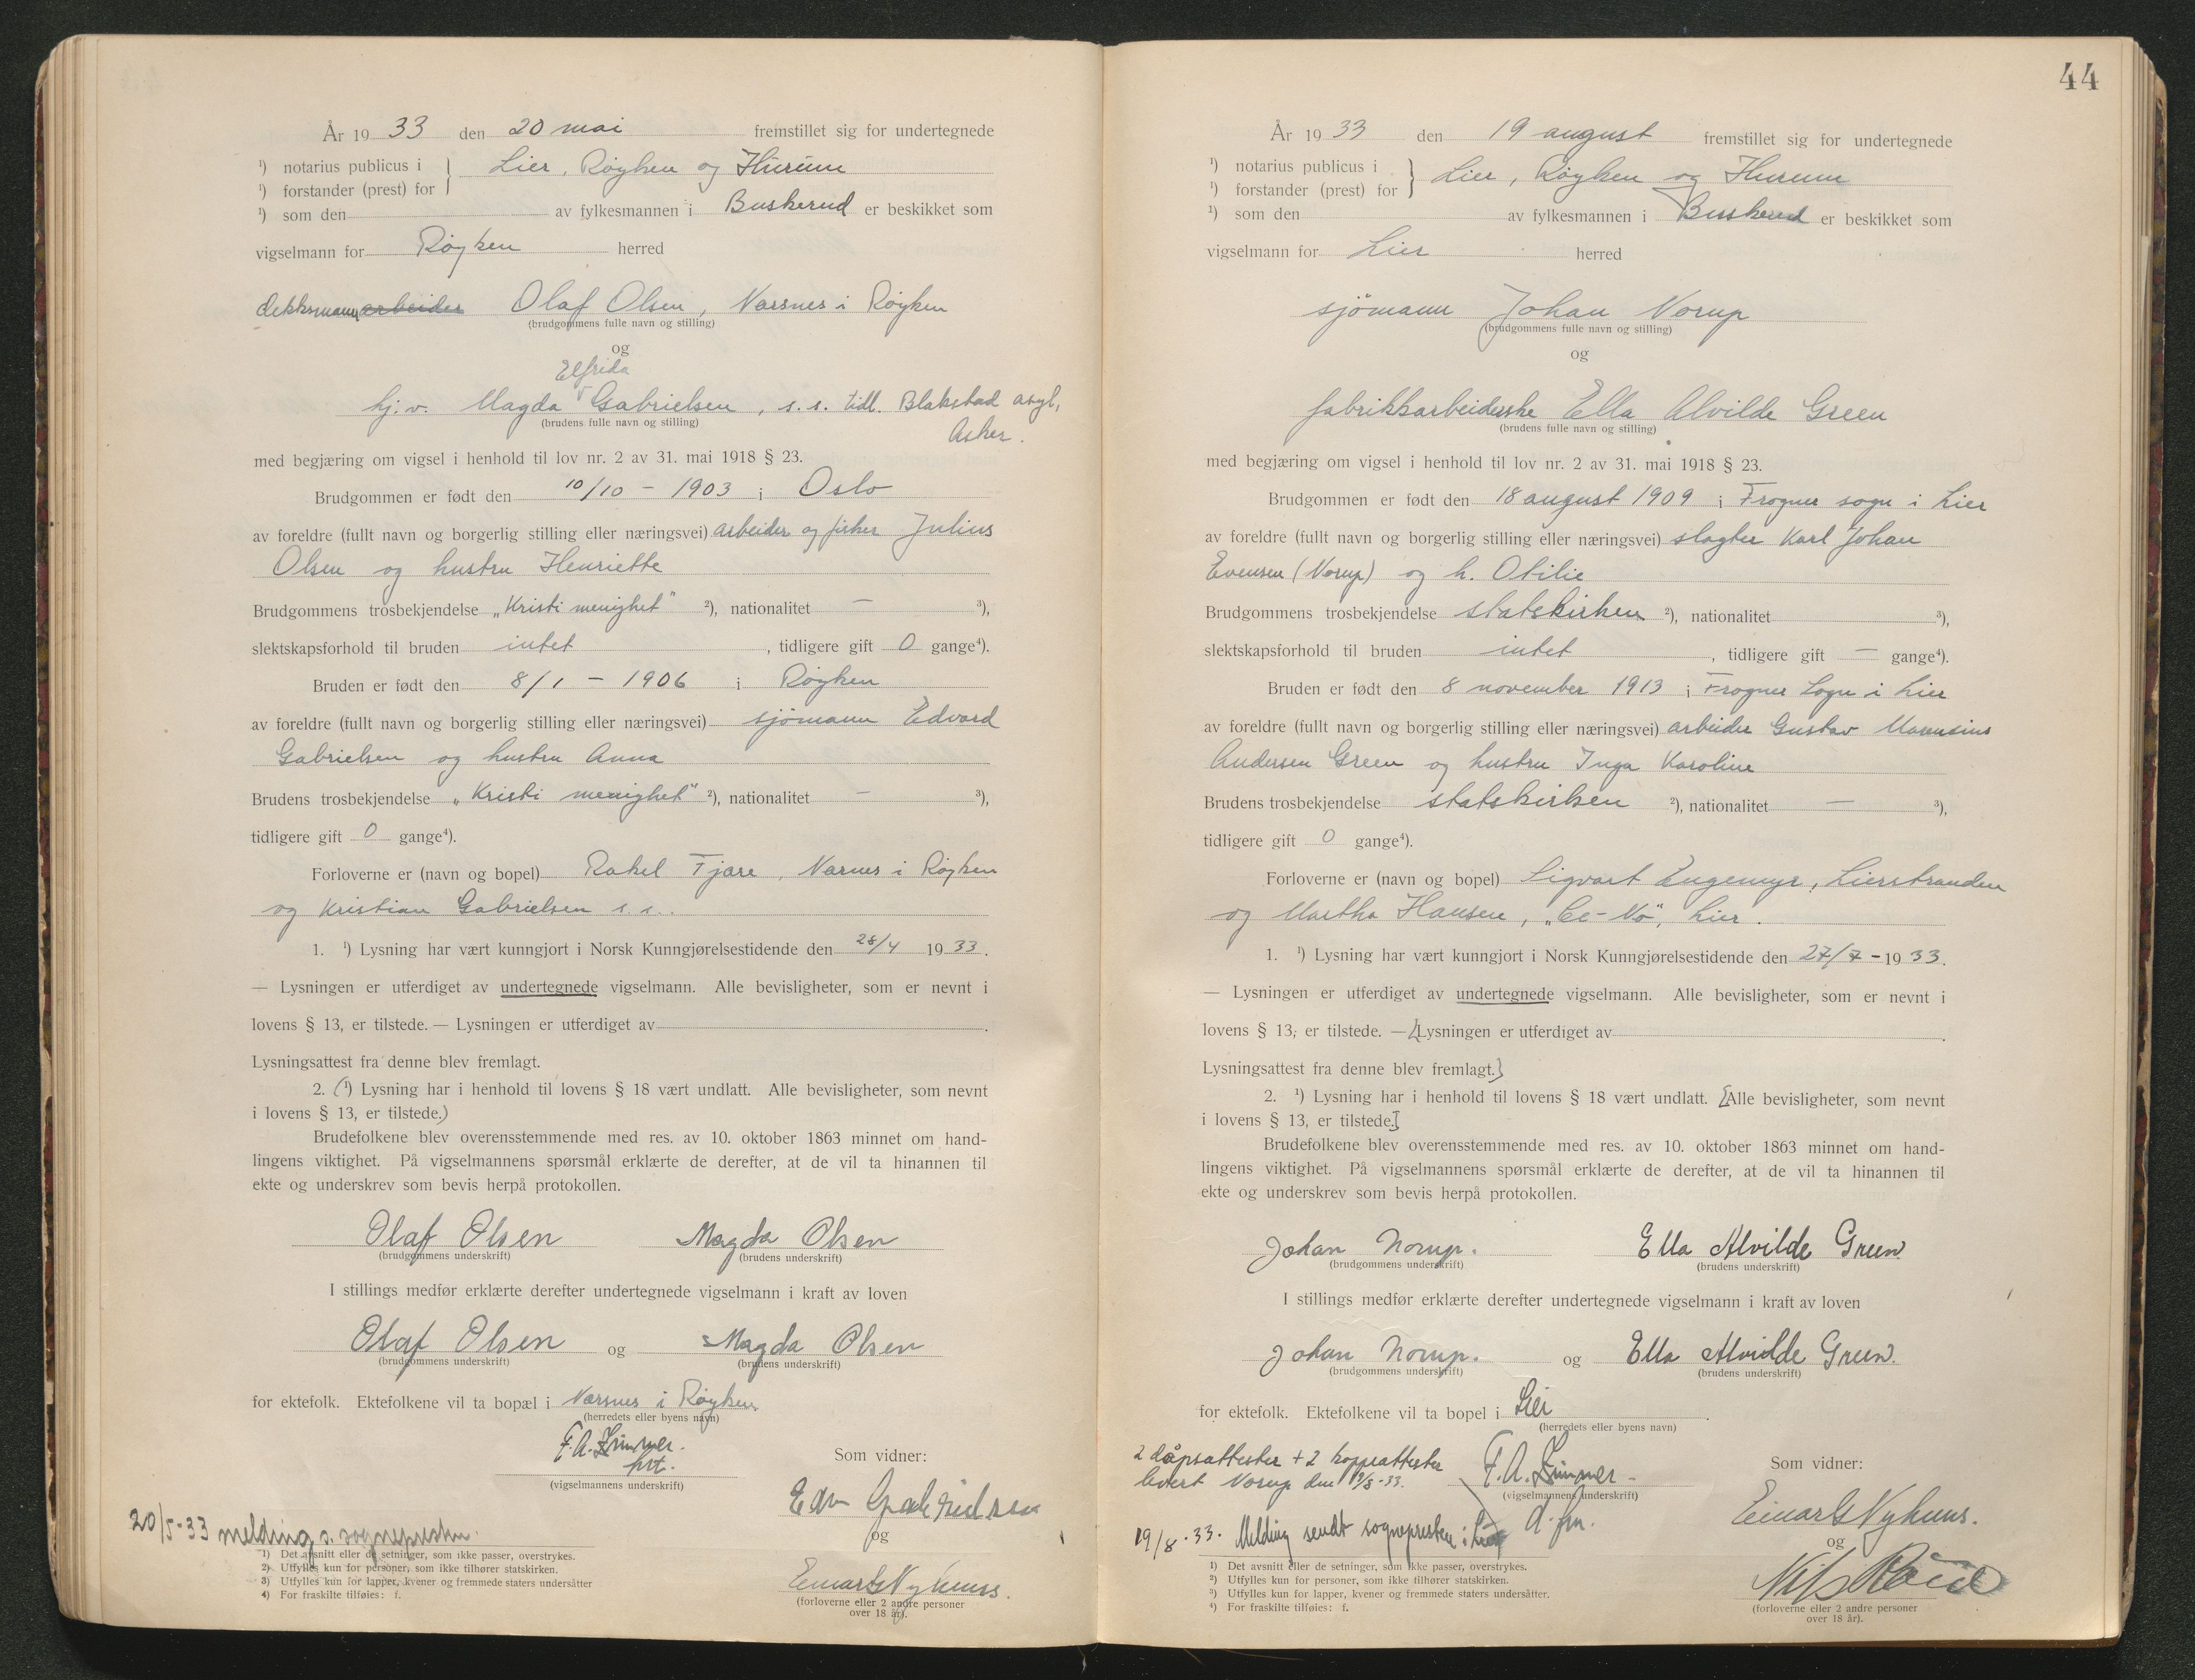 År 19 33 den 20 mai fremstillet sig for undertegnede
¹) notarius publicus i } Lier, Røyken og Hurum
¹) forstander (prest) for
¹) som den av fylkesmannen i Buskerud er beskikket som
vigselmann for Røyken herred
dekksmann arbeider Olaf Olsen, Nærsnes i Røyken
(brudgommens fulle navn og stilling)
og
Elfrida
hj.v. Magda Gabrielsen, s.s. tidl. Blakstad asyl,
(brudens fulle navn og stilling)
Asker.
med begjæring om vigsel i henhold til lov nr. 2 av 31. mai 1918 § 23.
Brudgommen er født den 10/10 - 1903 i Oslo
av foreldre (fullt navn og borgerlig stilling eller næringsvei) arbeider og fisker Julius
Olsen og hustru Henriette
Brudgommens trosbekjendelse „Kristi menighet" ²), nationalitet — ³),
slektskapsforhold til bruden intet, tidligere gift 0 gange⁴).
Bruden er født den 8/1 - 1906 i Røyken
av foreldre (fullt navn og borgerlig stilling eller næringsvei) sjömann Edvard
Gabrielsen og hustru Anna
Brudens trosbekjendelse „Kristi menighet" ²), nationalitet — ³),
tidligere gift 0 gange⁴).
Forloverne er (navn og bopel) Rakel Fjære, Nærnes i Røyken
og Kristian Gabrielsen s.s.
1. ¹) Lysning har vært kunngjort i Norsk Kunngjørelsestidende den 28/4 1933.
— Lysningen er utferdiget av undertegnede vigselmann. Alle bevisligheter, som er nevnt i
lovens § 13, er tilstede. — Lysningen er utferdiget av .
Lysningsattest fra denne blev fremlagt.
2. (¹) Lysning har i henhold til lovens § 18 vært undlatt. Alle bevisligheter, som nevnt
i lovens § 13, er tilstede.)
Brudefolkene blev overensstemmende med res. av 10. oktober 1863 minnet om hand-
lingens viktighet. På vigselmannens spørsmål erklærte de derefter, at de vil ta hinannen til
ekte og underskrev som bevis herpå protokollen.
Olaf Olsen Magda Olsen
(brudgommens underskrift) (brudens underskrift)
I stillings medfør erklærte derefter undertegnede vigselmann i kraft av loven
Olaf Olsen og Magda Olsen
(brudgommens underskrift) (brudens underskrift)
for ektefolk. Ektefolkene vil ta bopæl i Nærsnes i Røyken
(herredets eller byens navn)
F.A.
(vigselmannens underskrift)
Som vidner:
Edv Gabrielsen
og
20/5-33 melding s. sognepresten.
Einar Nyhuus.
(forloverne eller 2 andre personer
over 18 år).
1) Det avsnitt eller de setninger, som ikke passer, overstrykes.
2) Utfylles kun for personer, som ikke tilhører statskirken.
3) Utfylles kun for lapper, kvener og fremmede staters undersåtter
4) For fraskilte tilføies: f.
44
År 19 33 den 19 august fremstillet sig for undertegnede
¹) notarius publicus i } Lier, Røyken og Hurum
¹) forstander (prest) for
¹) som den av fylkesmannen i Buskerud er beskikket som
vigselmann for Lier herred
sjömann Johan Norup
(brudgommens fulle navn og stilling)
og
fabrikkarbeiderske Ella Alvilde Green
(brudens fulle navn og stilling)
med begjæring om vigsel i henhold til lov nr. 2 av 31. mai 1918 § 23.
Brudgommen er født den 18 august 1909 i Frogner sogn i Lier
av foreldre (fullt navn og borgerlig stilling eller næringsvei) slagter Karl Johan
Evensen (Norup) og h. Otilie
Brudgommens trosbekjendelse statskirken ²), nationalitet ³),
slektskapsforhold til bruden intet, tidligere gift — gange⁴).
Bruden er født den 8 november 1913 i Frogner Sogn i Lier
av foreldre (fullt navn og borgerlig stilling eller næringsvei) arbeider Gustav Marensius
Andersen Green og hustru Inga Karoline
Brudens trosbekjendelse statskirken ²), nationalitet — ³),
tidligere gift 0 gange⁴).
Forloverne er (navn og bopel) Sigvart Engemyr, Lierstranden
og Martha Hansen, Lier.
1. ¹) Lysning har vært kunngjort i Norsk Kunngjørelsestidende den 27/7 - 1933.
— Lysningen er utferdiget av undertegnede vigselmann. Alle bevisligheter, som er nevnt i
lovens § 13, er tilstede. — [Lysningen er utferdiget av .
Lysningsattest fra denne blev fremlagt.]
2. ¹) Lysning har i henhold til lovens § 18 vært undlatt. [Alle bevisligheter, som nevnt
i lovens § 13, er tilstede.]
Brudefolkene blev overensstemmende med res. av 10. oktober 1863 minnet om hand-
lingens viktighet. På vigselmannens spørsmål erklærte de derefter, at de vil ta hinannen til
ekte og underskrev som bevis herpå protokollen.
Johan Norup. Ella Alvilde Green
(brudgommens underskrift) (brudens underskrift)
I stillings medfør erklærte derefter undertegnede vigselmann i kraft av loven
Johan Norup. og Ella Alvilde Green.
(brudgommens underskrift) (brudens underskrift)
for ektefolk. Ektefolkene vil ta bopel i Lier .
(herredets eller byens navn)
2 dåpsattester + 2 koppeattester
levert Norup den 19/8-33.
F.A.
(vigselmannens underskrift)
Som vidner:
Einar Nyhuus.
og
19/8.33. Melding sendt sognepresten i Lier
Nils
(forloverne eller 2 andre personer
over 18 år).
¹) Det avsnitt eller de setninger, som ikke passer, overstrykes.
²) Utfylles kun for personer, som ikke tilhører statskirken.
³) Utfylles kun for lapper, kvener og fremmede staters undersåtter.
⁴) For fraskilte tilføies: f.